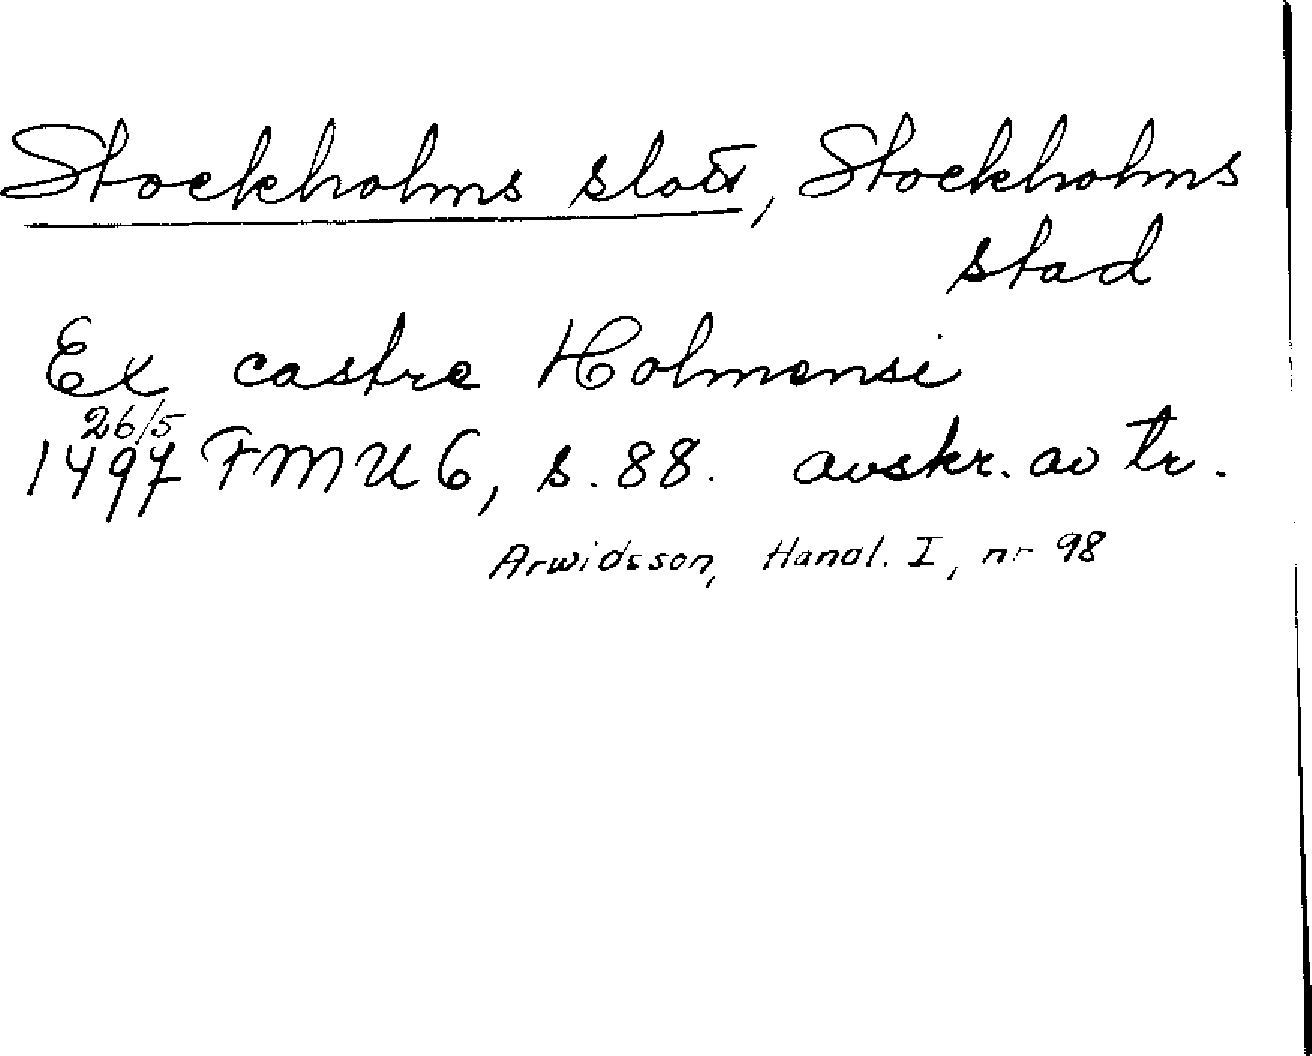 Stockholms slott, Stockholms
stad
Ex castre Holmensi
26/5
1497 FMU 6, s. 88. avskr. av tr.
Arwidsson, Handl. I, nr 98